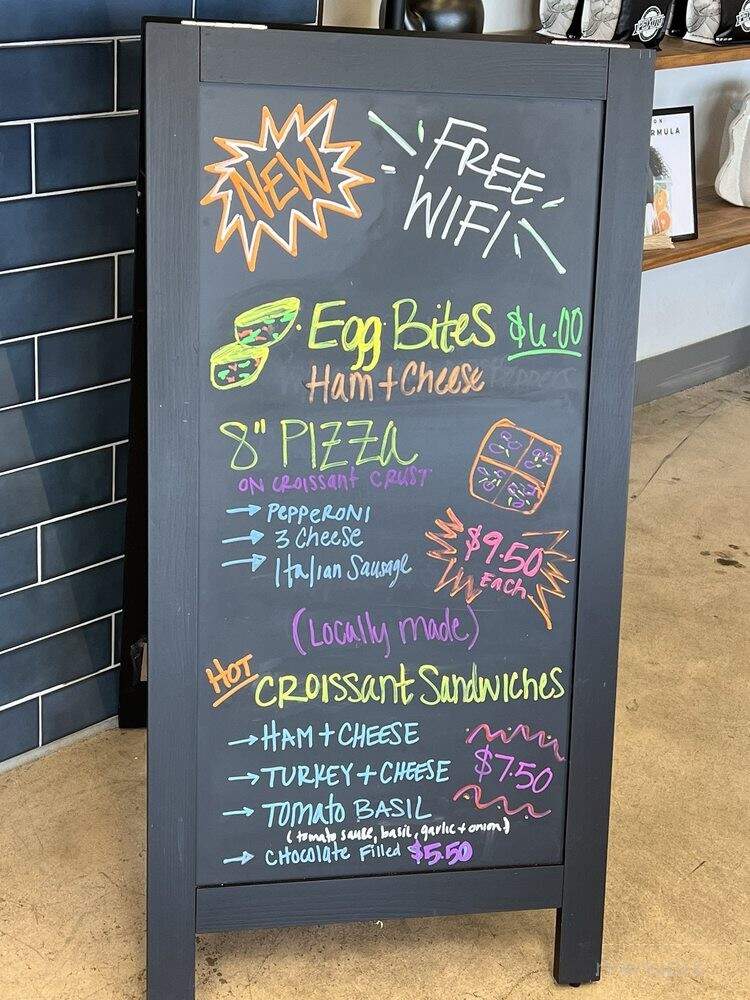 NEW
FREE
WIFI
Egg Bites $6.00
Ham + Cheese
8" PIZZA
ON CROISSANT CRUST
→ PEPPERONI
→ 3 Cheese
→ Italian Sausage
$9.50
Each
(Locally made)
HOT
CROISSANT SANDWICHES
→ HAM + CHEESE
→ TURKEY + CHEESE
$7.50
→ TOMATO BASIL
(tomato sauce, basil, garlic + onion)
→ CHOCOLATE Filled $5.50